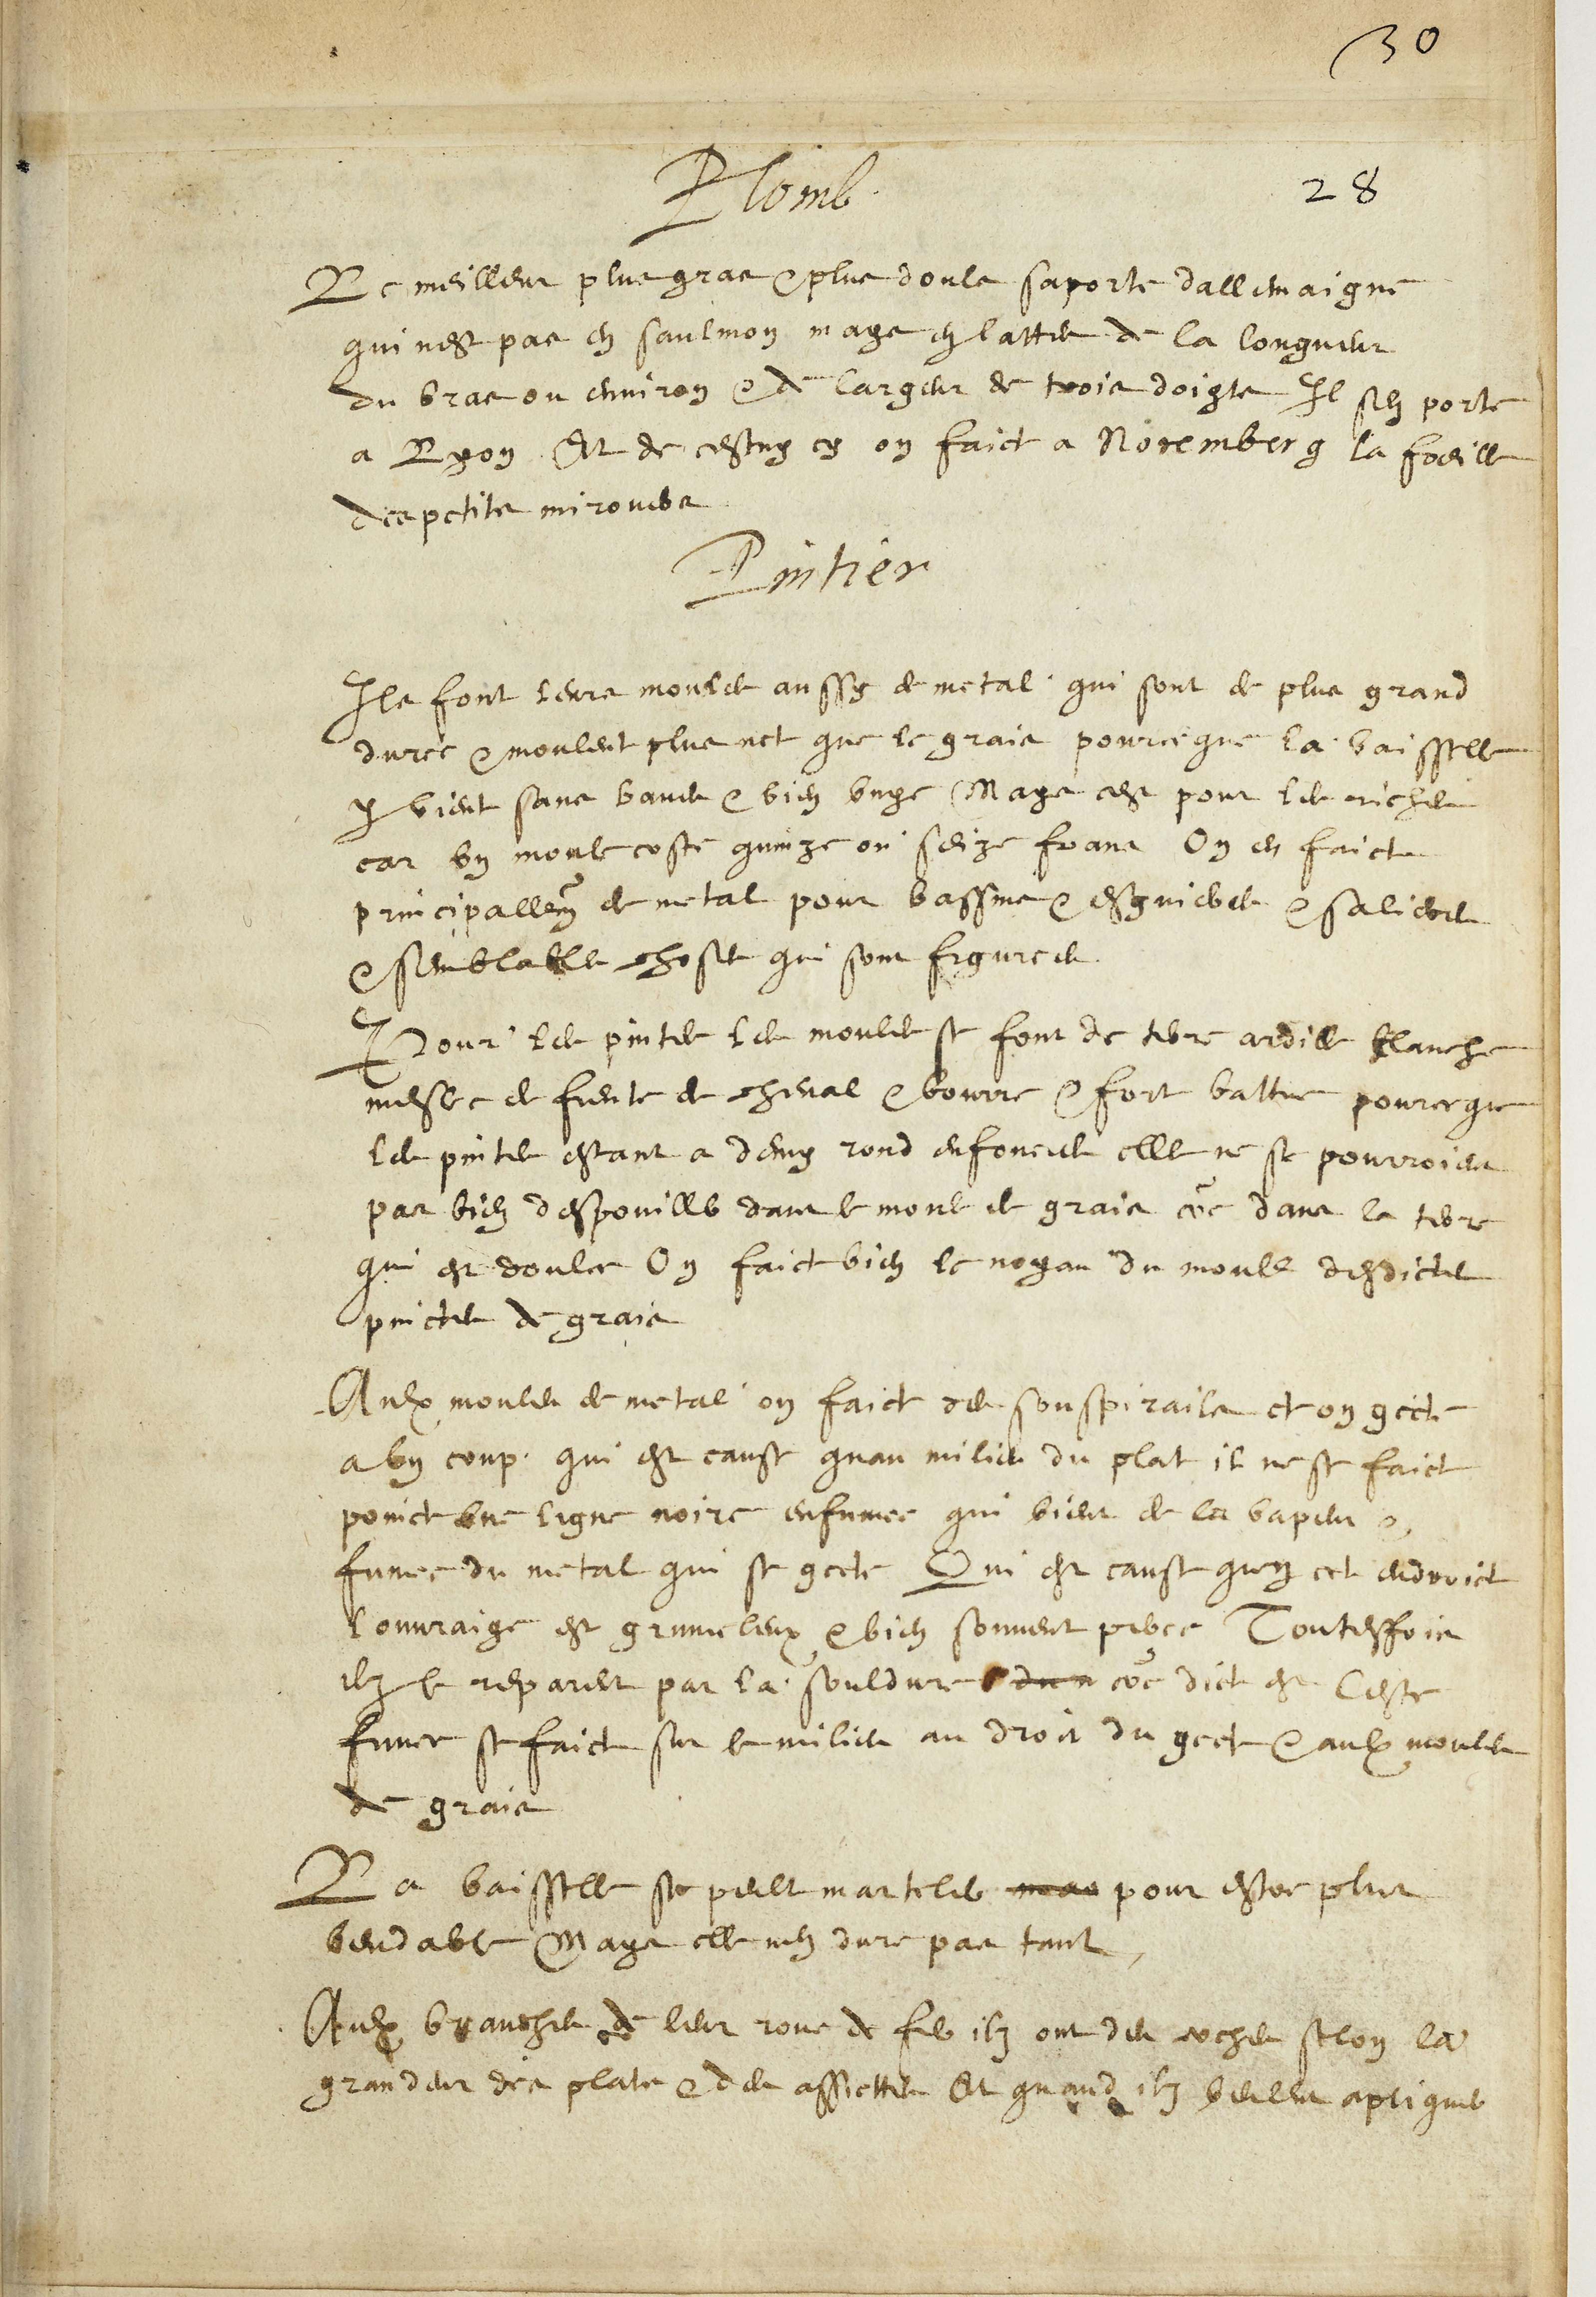 30
Plomb
28
Le meilleur plus gras & plus doulx saporte dallemaigne
qui nest pas en saulmon mays en lattes de la longueur
du bras ou environ & de largeur de trois doigts Il sen porte
a Lyon Et de cestuy cy on faict a Noremberg la foeille
des petits mirouers
Pintier
Ils font leurs moules aussy de metal qui sont de plus grand
duree & moulent plus net que le grais pourceque la vaisselle
y vient sans baves & bien unye Mays cest pour les riches
car un moule coste quinze ou seize francs On en faict
principallem de metal pour bassins & esguieres & salieres
& semblables choses qui sont figurees
Pour les pintes les moules se font de terre ardille blanche
meslee de fiente de cheval & bourre & fort battue pourceque
les pintes estant a demy rond enfoncees elles ne se pourroient
pas bien despouiller dans le moule de grais coe dans la terre
qui est doulce On faict bien le noyau du moule desdictes
pinctes de grais
Aulx moules de metal on faict des souspirails et on gecte
a un coup qui est cause quau milieu du plat il ne se faict
poinct une ligne noire enfumee qui vient de la vapeur &
fumee du metal qui se gecte Qui est cause quen cet endroict
louvraige est grumeleux & bien souvent perce Toutesfois
ilz le reparent par la souldure dun coe dict est Ceste
fumee se faict sur le milieu au droit du gect & aulx moules
de grais
La vaisselle se peult marteler mays pour estre plus
vendable Mays elle nen dure pas tant
Aulx branches de leur roue de fer ilz ont des coches selon la
grandeur des plats & des assiettes Et quand ilz veulent apliquer